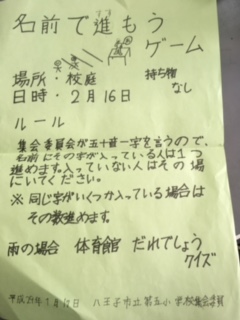 名前で進もう
ゲーム
場所・校庭
持ち物
なし
日時・2月16日
ルール
集会委員会が五十音一字を言うので、
名前にその字が入っている人は1つ
進めます。入っていない人はその場
にいてください。
※同じ字がいくつか入っている場合は
その数進めます。
雨の場合 体育館 だれでしょう
クイズ
平成29年1月18日 八王子市立第五小学校集会委員